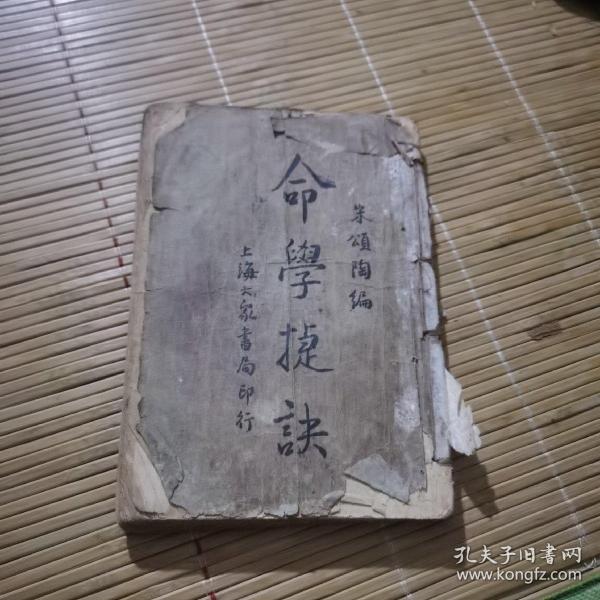 朱頌陶编
命學捷訣
上海大眾書局印行
孔夫子旧書网
www.kongfz.com